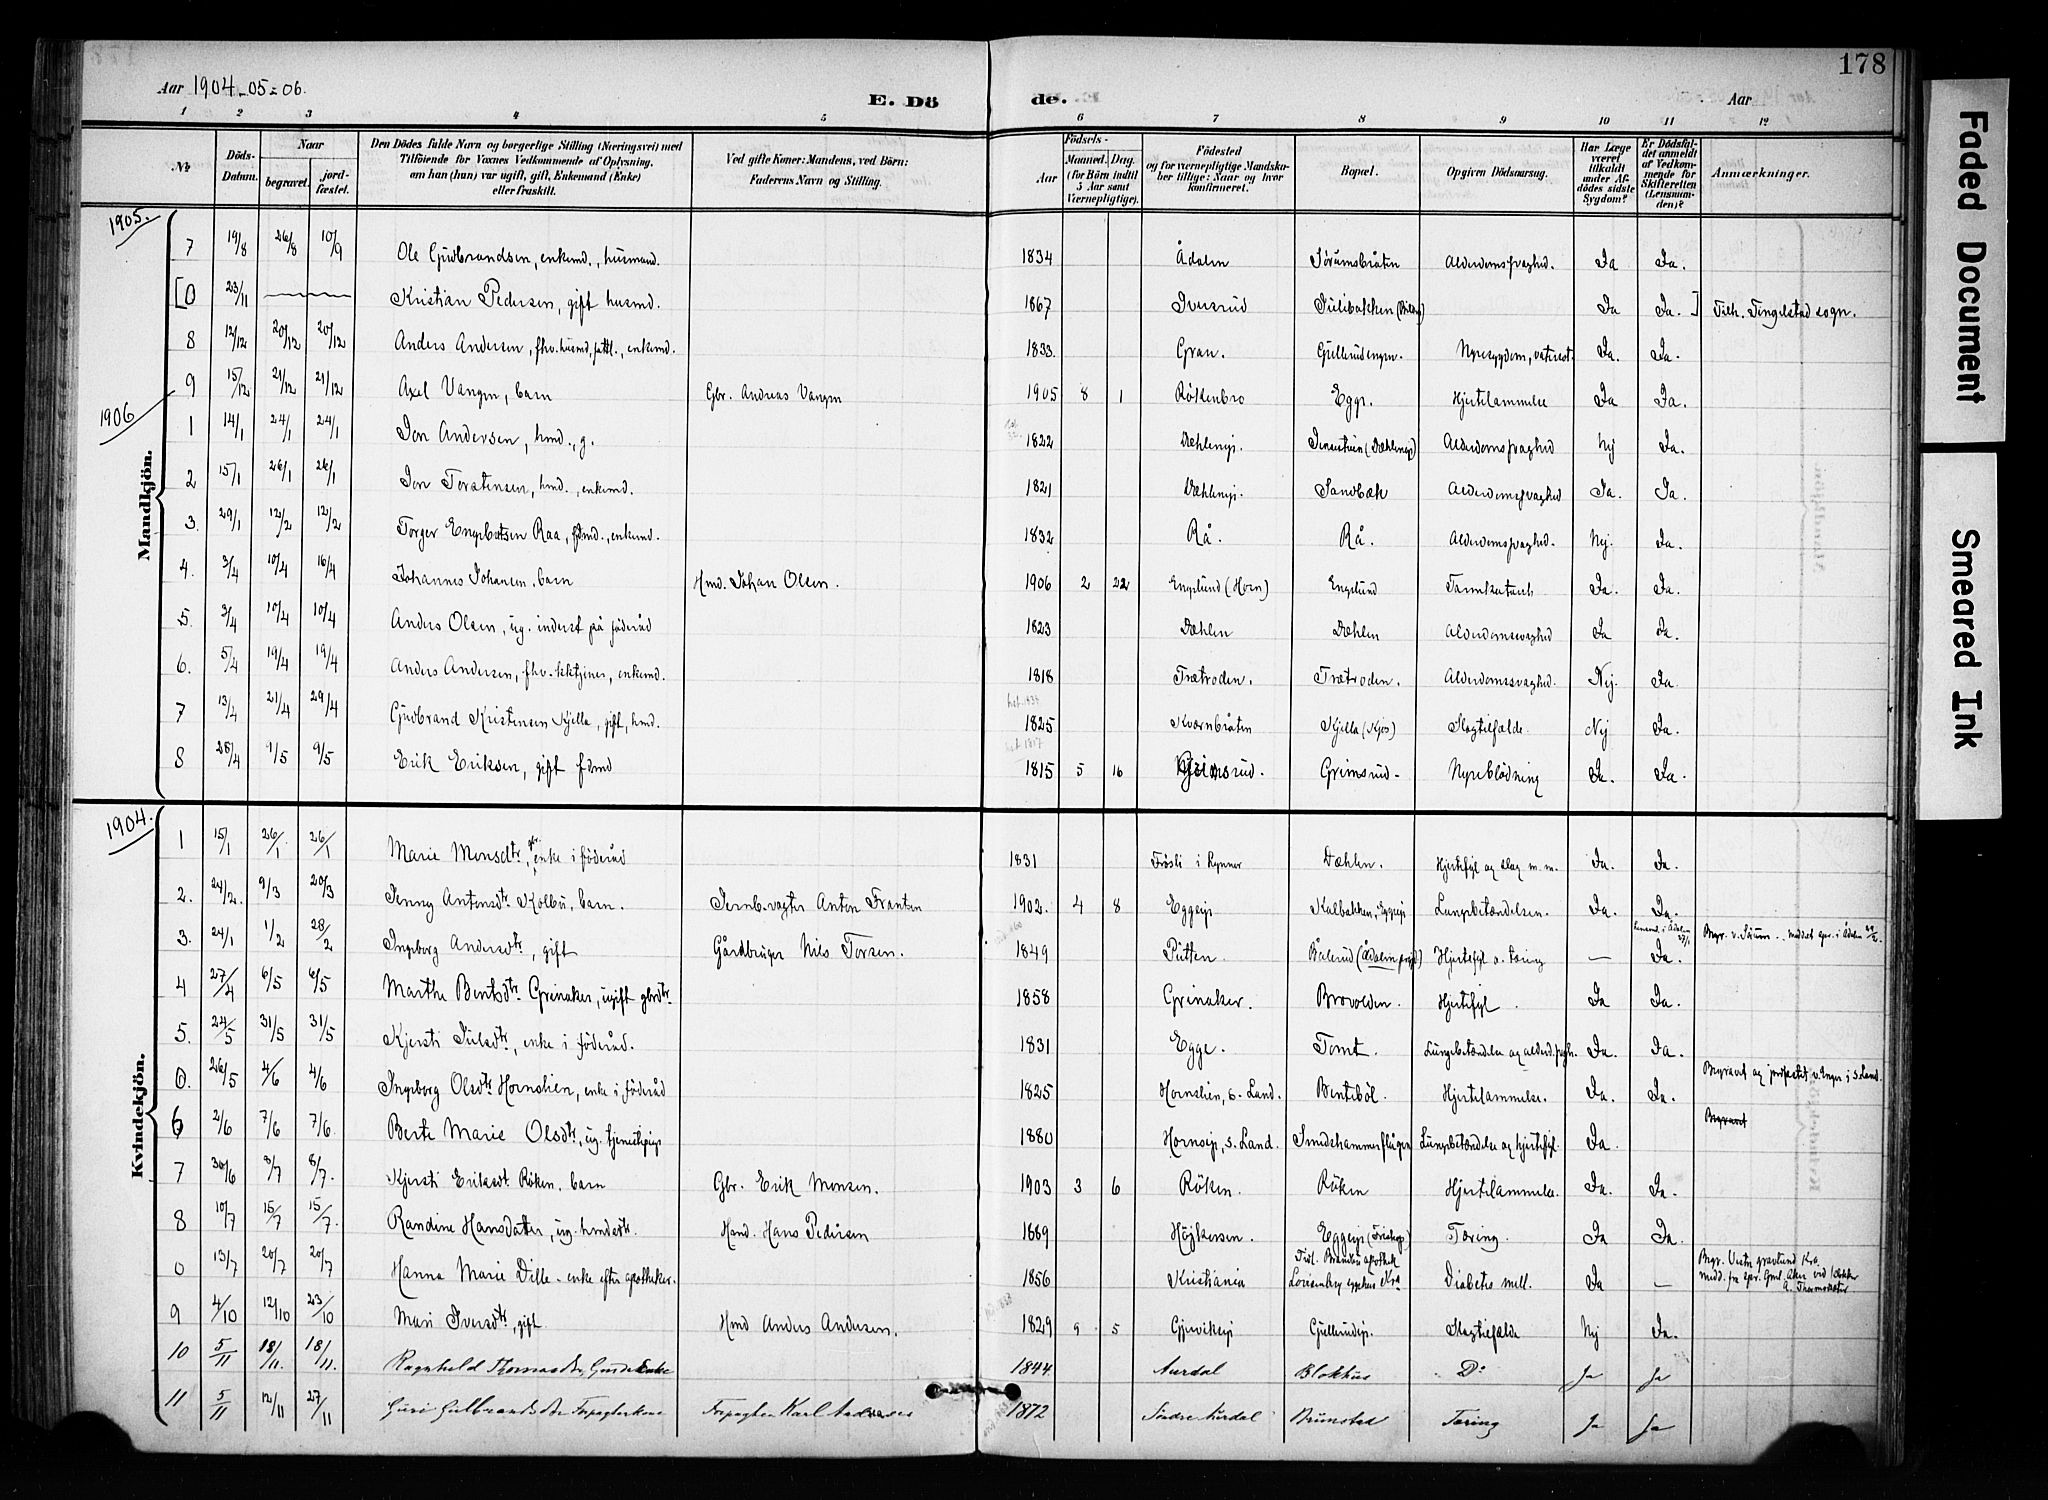 178
Aar 1904-05-06.
E. Döde.
Aar
1 2 3 4 5 6 7 8 9 10 11 12
№
Döds-Datum.
Naar
begravet.
jord-fæstet.
Den Dödes fulde Navn og borgerlige Stilling (Næringsvei) med Tilföiende for Voxnes Vedkommende af Oplysning, om han (hun) var ugift, gift, Enkemand (Enke) eller fraskilt.
Ved gifte Koner: Mandens, ved Börn: Faderens Navn og Stilling.
Födsels-
Aar
Maaned. Dag.
(for Börn indtil 5 Aar samt Værnepligtige).
Födested og for værnepligtige Mandskaber tillige: Naar og hvor konfirmeret.
Bopæl.
Opgiven Dödsaarsag.
Har Læge været tilkaldt under Afdödes sidste Sygdom?
Er Dödsfaldet anmeldt af Vedkommende for Skifteretten (Lensmanden)?
Anmærkninger.
Mandkjön.
1905.
7 19/8 26/8 10/9 Ole Gudbrandsen, enkemd., husmand. 1834 Ådalen Sörumsbråten Alderdomssvaghed. Ja Ja.
[0 23/11 Kristian Pedersen, gift husmd. 1867 Iversrud Ja Ja.] Tilh. Tingelstad sogn.
8 12/12 20/12 20/12 Anders Andersen, fhv. husmd, fattl., enkemd. 1833. Gran. Gullerudengen. Nyresygdom, vatersot. Ja. Ja.
9 15/12 21/12 21/12 Axel Vangen, barn Gbr. Andreas Vangen 1905 8 1 Røkenbro Egge. Hjertelammelse Ja Ja.
1906
1 14/1 24/1 24/1 Jon Andersen, hmd., g. 1822 Dæhlenejе. Alderdomssvaghed Nej Ja.
2 15/1 26/1 26/1 Jon Torstensen, hmd., enkemd. 1821 Dæhleneje. Sandbæk Alderdomssvaghed Ja. Ja.
3. 29/1 12/2 12/2 Torger Engebretsen Raa, fdmd., enkemd. 1832 Rå. Rå. Alderdomssvaghed. Nej. Ja.
4. 3/4 10/4 16/4 Johannes Johansen, barn Hmd. Johan Olsen. 1906 2 22 Englund (Horn) Englund Tarmkatarrh Ja. Ja.
5. 3/4 10/4 10/4 Anders Olsen, ug. inderst på föderåd 1823 Dæhlen Dæhlen Alderdomssvaghed Ja Ja.
6. 5/4 19/4 19/4 Anders Andersen, fhv. kirketjener, enkemd. 1818 Trætroden. Trætroden. Alderdomssvaghed. Nej. Ja.
7 13/4 21/4 29/4 Gudbrand Kristensen Kjella, gift, hmd. 1825 Kværnbråten Kjella (Kjos) Slagtilfælde. Nej Ja.
8 28/4 9/5 9/5 Erik Eriksen, gift fdmd 1815 5 16 Grimsrud. Grimsrud. Nyreblödning Ja. Ja.
Kvindekjön.
1904.
1 15/1 26/1 26/1 Marie Monsdtr., gbr. enke i föderåd 1831 Frösli i Rynner Dæhlen. Hjertefejl og slag m. m. Ja. Ja.
2. 24/2. 9/3 20/3 Jenny Antonsdtr. Kolbu, barn. Jernb.vagter Anton Frantsen 1902. 4 8 Eggeeje Kalbakken, Eggeeje Lungebetændelsen. Ja. Ja.
3. 24/1 1/2 28/2 Ingeborg Andersdtr., gift Gårdbruger Nils Torsen. 1849 Putten Bålerud (Ådalen prgd) Hjertefejl o. tæring — Lensmd. i Ådalen 27/1 Ja. Begr. v. Sörum. meddelt spr. i Ådalen 29/2.
4 27/4 6/5 6/5 Marthe Bentsdtr. Grinaker, ugift gbrdtr. 1858 Grinaker. Brovolden. Hjertefejl. Ja Ja.
5. 24/5 31/5 31/5 Kjersti Julsdtr., enke i föderåd. 1831 Egge. Tomt. Lungebetændelse og alderd.svgh. Ja. Ja.
0. 26/5 4/6 4/6 Ingeborg Olsdtr. Hornslien, enke i föderåd 1825 Hornslien, S. Land. Benteböl. Hjertelammelse. Ja. Ja. Begravet og jordfæstet v. Enger i S. Land.
6 2/6 7/6 7/6. Berte Marie Olsdtr., ug. tjenestepige 1880 Horneeje, S. Land. Smedshammerflågen Lungebetændelse og hjertefejl. Ja. Begravet
7 30/6 8/7 8/7. Kjersti Eriksdt. Röken, barn Gbr. Erik Monsen. 1903 3 6 Röken. Röken Hjertelammelse. Ja. Ja.
8 10/7 15/7 15/7. Randine Hansdatter, ug. hmdsdtr. Hmd. Hans Pedersen 1889 Höjkorsen. Eggeeje Tæring. Ja Ja.
0 13/7 20/7 20/7 Hanna Marie Dille. enke efter apotheker. 1856 Kristiania Tidl. Brandbu apothek Lovisenberg sygehus Kra Diabetes mell. Ja — Begr. Vestre gravlund Kra. medd. fra spr. Gml. Aker ved klokker
9 4/10 12/10 23/10 Mari Iversdtr., gift Hmd Anders Andersen. 1829 9 5 Gjøvikeje Gullerudeje. Slagtilfælde Nej Ja.
10 5/11 18/11. 18/11. Ragnhild Thomasdtr, Gaardenke 1844. Aurdal Blokhus Do Ja Ja
11 5/11 12/11 27/11 Guri Gulbrandsdtr Forpagterkone Forpagter Karl Andersen 1872 Søndre Aurdal Brunstad Tæring Ja Ja
Faded Document
Smeared Ink